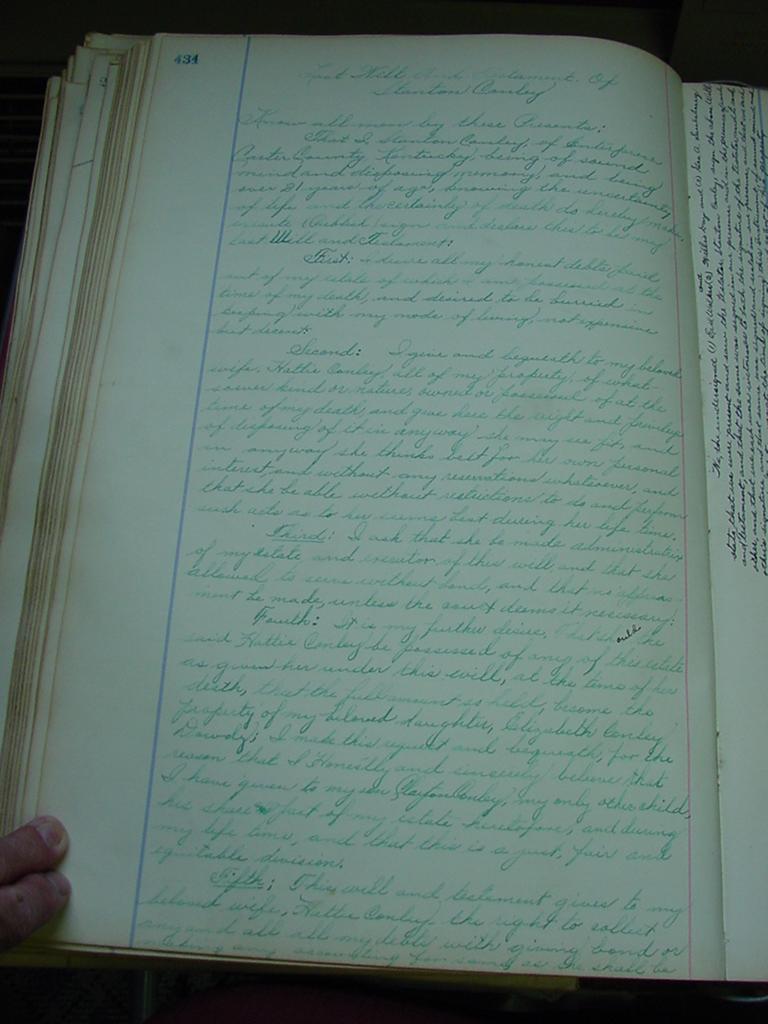 434
Last Will And Testament Of
Stanton Conley
Know all men by these Presents:
That I, Stanton Conley, of Enterprise
Carter County, Kentucky, being of sound
mind and disposing memory, and being
over 21 years of age, knowing the uncertainty
of life and the certainty of death do hereby make,
execute, Publish, sign and declare this to be my
last Will and Testament:
First: I desire all my honest debts paid
out of my estate of which I am possessed at the
time of my death, and desired to be burried in
keeping with my mode of living, not expensive
but decent.
Second: I give and bequeath to my beloved
wife, Hattie Conley, all of my property, of what-
soever kind or nature, owned or possessed of at the
time of my death, and give her the right and privilege
of disposing of it in anyway she may see fit, and
in anyway she thinks best for her own personal
interest, and without any reservations whatsoever, and
that she be able without restrictions to do and perform
such acts as to her seems best during her life time.
Third: I ask that she be made administratrix
of my estate and executor of this will and that she
allowed to serve without bond, and that no appraise-
ment be made, unless the court deems it necessary.
Fourth: It is my further desire, that should the
said Hattie Conley be possessed of any of this estate
as given her under this will, at the time of her
death, that the full amount so held, become the
property of my beloved daughter, Elizabeth Conley
Dowdy; I make this request and bequeath, for the
reason that I Honestly and sincerely believe that
I have given to my son Clayton Conley, my only other child,
his share part of my estate heretofore, and during
my life time, and that this is a just, fair and
equitable division.
Fifth: This will and testament gives to my
beloved wife, Hattie Conley the right to collect
any and all all my debts with giving bond or
making any accounting for same, as she shall be
We, the undersigned